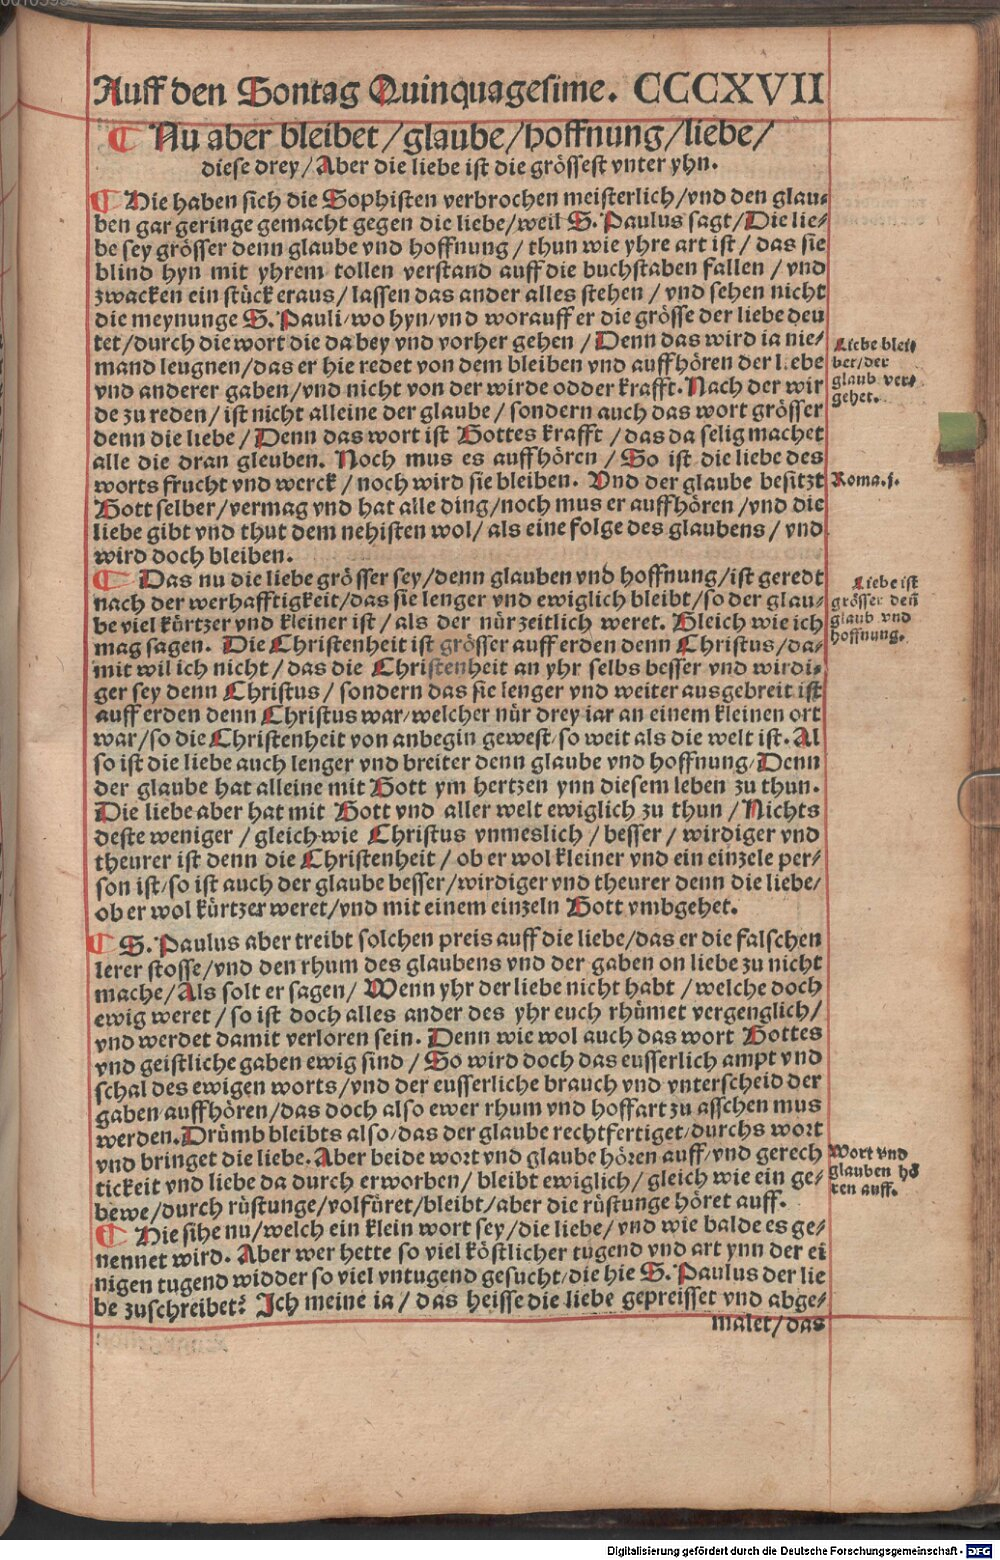 Auff den Sontag Quinquagesime. CCCXVII
Nu aber bleibet/glaube/hoffnung/liebe/
diese drey/Aber die liebe ist die grössest vnter yhn.
Hie haben sich die Sophisten verbrochen meisterlich/vnd den glau-
ben gar geringe gemacht gegen die liebe/weil S. Paulus sagt/Die lie-
be sey grösser denn glaube vnd hoffnung/thun wie yhre art ist/das sie
blind hyn mit yhrem tollen verstand auff die buchstaben fallen/vnd
zwacken ein stück eraus/lassen das ander alles stehen/vnd sehen nicht
die meynunge S. Pauli/wo hyn/vnd worauff er die grösse der liebe deu
tet/durch die wort die da bey vnd vorher gehen/Denn das wird ia nie-
mand leugnen/das er hie redet von dem bleiben vnd auffhören der liebe
vnd anderer gaben/vnd nicht von der wirde odder krafft. Nach der wir
de zu reden/ist nicht alleine der glaube/sondern auch das wort grösser
denn die liebe/Denn das wort ist Gottes krafft/das da selig machet
alle die dran gleuben. Noch mus es auffhören/So ist die liebe des
worts frucht vnd werck/noch wird sie bleiben. Vnd der glaube besitzt
Gott selber/vermag vnd hat alle ding/noch mus er auffhören/vnd die
liebe gibt vnd thut dem nehisten wol/als eine folge des glaubens/vnd
wird doch bleiben.
Das nu die liebe grösser sey/denn glauben vnd hoffnung/ist geredt
nach der werhafftigkeit/das sie lenger vnd ewiglich bleibt/so der glau-
be viel kürtzer vnd kleiner ist/als der nür zeitlich weret. Gleich wie ich
mag sagen. Die Christenheit ist grösser auff erden denn Christus/da-
mit wil ich nicht/das die Christenheit an yhr selbs besser vnd wirdi-
ger sey denn Christus/sondern das sie lenger vnd weiter ausgebreit ist
auff erden denn Christus war/welcher nür drey iar an einem kleinen ort
war/so die Christenheit von anbegin gewest/so weit als die welt ist. Al
so ist die liebe auch lenger vnd breiter denn glaube vnd hoffnung/Denn
der glaube hat alleine mit Gott ym hertzen ynn diesem leben zu thun.
Die liebe aber hat mit Gott vnd aller welt ewiglich zu thun/Nichts
deste weniger/gleich wie Christus vnmeslich/besser/wirdiger vnd
theurer ist denn die Christenheit/ob er wol kleiner vnd ein einzele per-
son ist/so ist auch der glaube besser/wirdiger vnd theurer denn die liebe/
ob er wol kürtzer weret/vnd mit einem einzeln Gott vmbgehet.
S. Paulus aber treibt solchen preis auff die liebe/das er die falschen
lerer stosse/vnd den rhum des glaubens vnd der gaben on liebe zu nicht
mache/Als solt er sagen/Wenn yhr der liebe nicht habt/welche doch
ewig weret/so ist doch alles ander des yhr euch rhümet vergenglich/
vnd werdet damit verloren sein. Denn wie wol auch das wort Gottes
vnd geistliche gaben ewig sind/So wird doch das eusserlich ampt vnd
schal des ewigen worts/vnd der eusserliche brauch vnd vnterscheid der
gaben auffhören/das doch also ewer rhum vnd hoffart zu asschen mus
werden. Drümb bleibts also/das der glaube rechtfertiget/durchs wort
vnd bringet die liebe. Aber beide wort vnd glaube hören auff/vnd gerech
tickeit vnd liebe da durch erworben/bleibt ewiglich/gleich wie ein ge-
bewe/durch rüstunge/volfüret/bleibt/aber die rüstunge höret auff.
Hie sihe nu/welch ein klein wort sey/die liebe/vnd wie balde es ge-
nennet wird. Aber wer hette so viel köstlicher tugend vnd art ynn der ei
nigen tugend widder so viel vntugend gesucht/die hie S. Paulus der lie
be zuschreibet? Ich meine ia/das heisse die liebe gepreisset vnd abge-
malet/das
Liebe blei-
bet/der
glaub ver-
gehet.
Roma. j.
Liebe ist
grösser deñ
glaub vnd
hoffnung.
Wort vnd
glauben hö
ren auff.
Digitalisierung gefördert durch die Deutsche Forschungsgemeinschaft - DFG